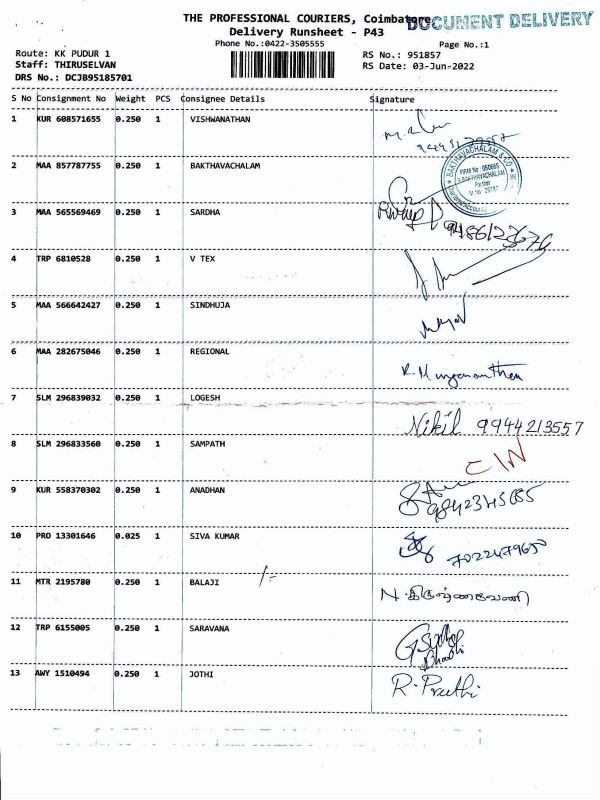 THE PROFESSIONAL COURIERS, Coimbatore
DOCUMENT DELIVERY
Delivery Runsheet - P43
Phone No.:0422-3505555
Page No.:1
Route: KK PUDUR 1
RS No.: 951857
Staff: THIRUSELVAN
RS Date: 03-Jun-2022
DRS No.: DCJB95185701
S No Consignment No Weight PCS Consignee Details Signature
1 KUR 608571655 0.250 1 VISHWANATHAN
2 MAA 857787755 0.250 1 BAKTHAVACHALAM
BAKTHAVACHALAM & CO
Partner
3 MAA 565569469 0.250 1 SARDHA
4 TRP 6810528 0.250 1 V TEX
5 MAA 566642427 0.250 1 SINDHUJA
6 MAA 282675046 0.250 1 REGIONAL
7 SLM 296839032 0.250 1 LOGESH Nikil 9944213557
8 SLM 296833560 0.250 1 SAMPATH
9 KUR 558370302 0.250 1 ANADHAN
10 PRO 13301646 0.025 1 SIVA KUMAR
11 MTR 2195780 0.250 1 BALAJI
12 TRP 6155005 0.250 1 SARAVANA
13 AWY 1510494 0.250 1 JOTHI R. Preethi